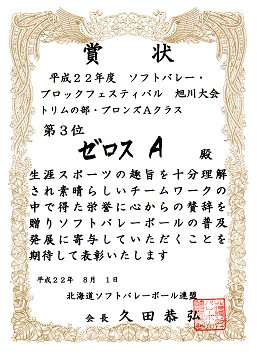 賞状
平成22年度 ソフトバレー・
ブロックフェスティバル 旭川大会
トリムの部・ブロンズAクラス
第3位
ゼロス A 殿
生涯スポーツの趣旨を十分理解
され素晴らしいチームワークの
中で得た栄誉に心からの賛辞を
贈りソフトバレーボールの普及
発展に寄与していただくことを
期待して表彰いたします
平成22年 8月 1日
北海道ソフトバレーボール連盟
会長 久田恭弘